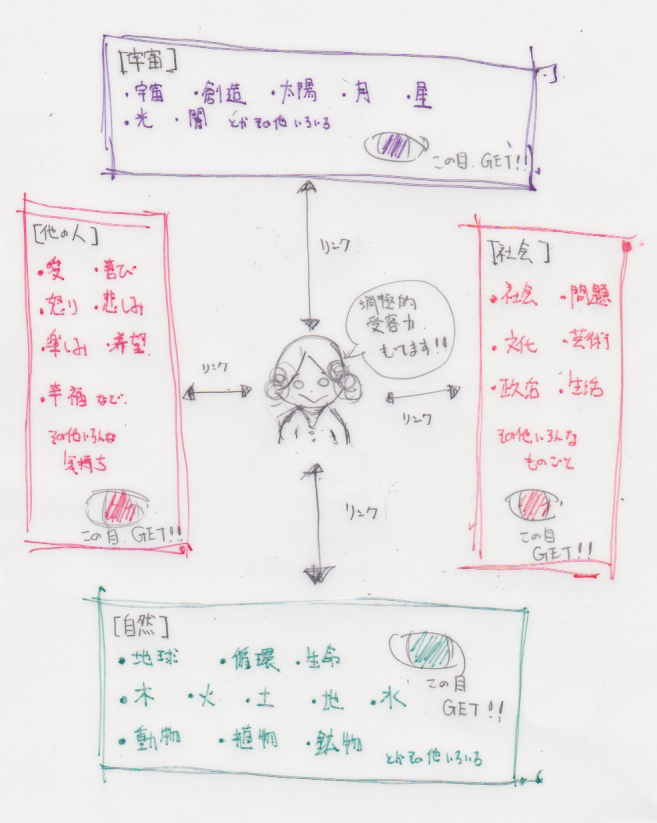 [宇宙]
・宇宙 ・創造 ・太陽 ・月 ・星
・光 ・闇 とかその他いろいろ
この目、GET!!
リンク
[他の人]
・愛 ・喜び
・怒り ・悲しみ
・楽しみ ・希望
・幸福 など
その他いろんな
気持ち
この目、GET!!
リンク
消極的
受容力
もてます!!
リンク
[社会]
・社会 ・問題
・文化 ・芸術
・政治 ・生活
その他いろんな
ものごと
この目
GET!!
リンク
[自然]
・地球 ・循環 ・生命
・木 ・火 ・土 ・地 ・水
・動物 ・植物 ・鉱物
とかその他いろいろ
この目
GET!!